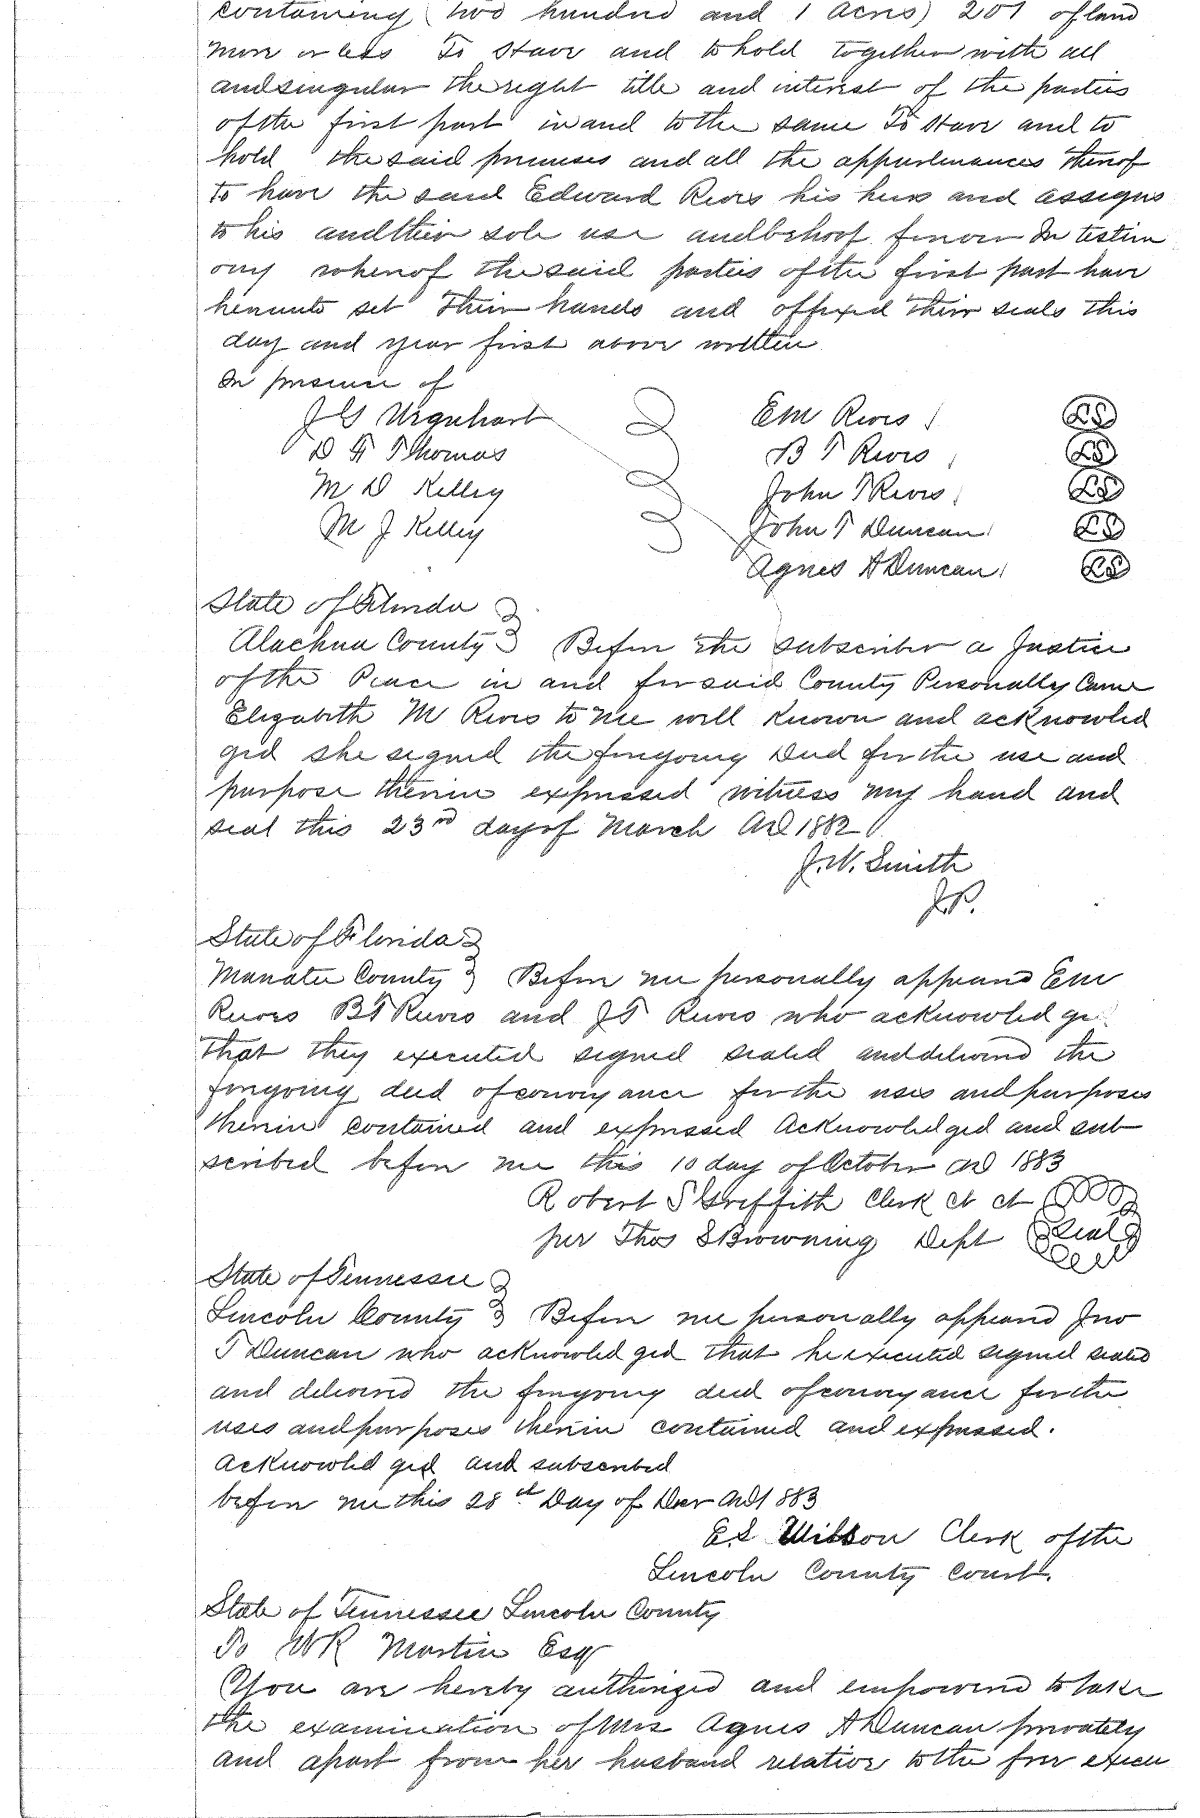 containing (two hundred and 1 acres) 201 of land
more or less To Have and to hold together with all
and singular the right title and interest of the parties
of the first part in and to the same To Have and to
hold the said premises and all the appurtenances thereof
to have the said Edward Rives his heirs and assigns
to his and their sole use and behoof forever In testim
ony whereof the said parties of the first part have
hereunto set their hands and affixed their seals this
day and year first above written
In presence of
J G Urquhart EM Rives LS
D F Thomas B T Rives LS
M D Kelley John T Rives LS
M J Kelley John T Duncan LS
Agnes A Duncan LS
State of Florida
Alachua County Before the subscriber a Justice
of the Peace in and for said County Personally Came
Elizabeth M Rives to me well known and acknowled
ged she signed the foregoing Deed for the use and
purpose therein expressed witness my hand and
seal this 23rd day of March AD 1882
J. W. Smith
J.P.
State of Florida
Manatee County Before me personally appeared EM
Rives BT Rives and JT Rives who acknowledge
that they executed signed sealed and delivered the
foregoing deed of conveyance for the uses and purposes
therein contained and expressed Acknowledged and sub
scribed before me this 10 day of October AD 1883
Robert S Griffith Clerk Ct Ct
per Thos S Browning Dept Seal
State of Tennessee
Lincoln County Before me personally appeared Jno
T Duncan who acknowledged that he executed signed sealed
and delivered the foregoing deed of conveyance for the
uses and purposes therein contained and expressed.
Acknowledged and subscribed
before me this 28th Day of Decr AD 1883
E.S. Wilson Clerk of the
Lincoln County Court.
State of Tennessee Lincoln County
To WR Martin Esqr
You are hereby authorized and empowered to take
the examination of Mrs Agnes A Duncan privately
and apart from her husband relative to the free execu